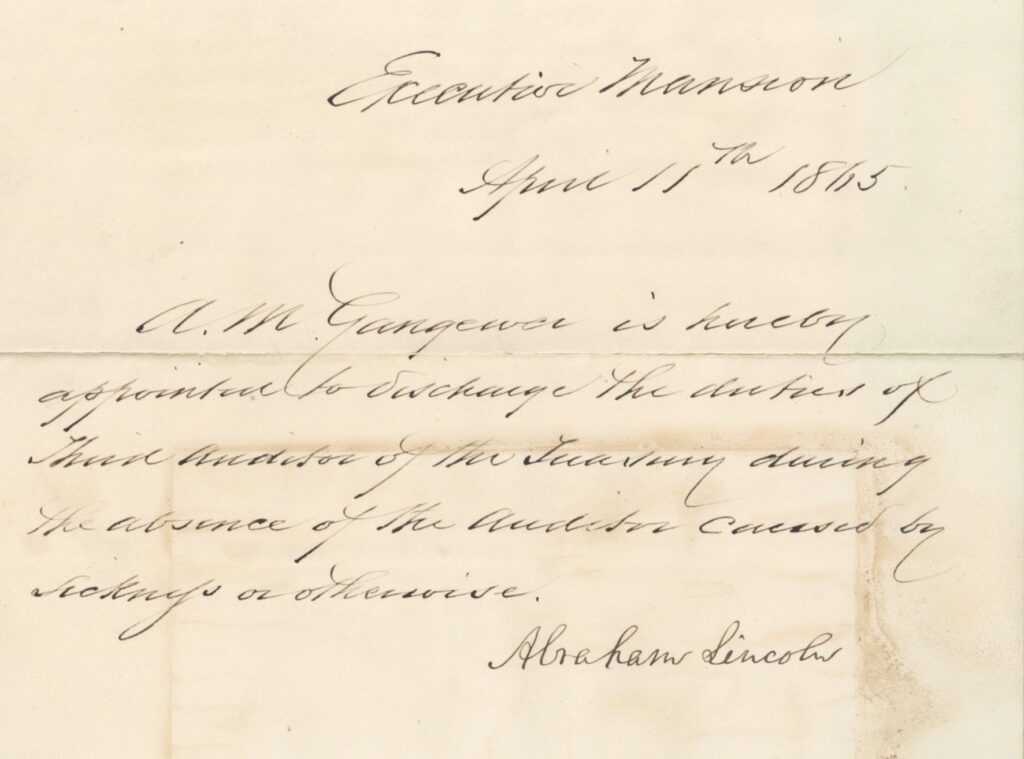 Executive Mansion
April 11th 1865.
A. M. Gangewer is hereby
appointed to discharge the duties of
Third Auditor of the Treasury during
the absence of the Auditor caused by
sickness or otherwise.
Abraham Lincoln